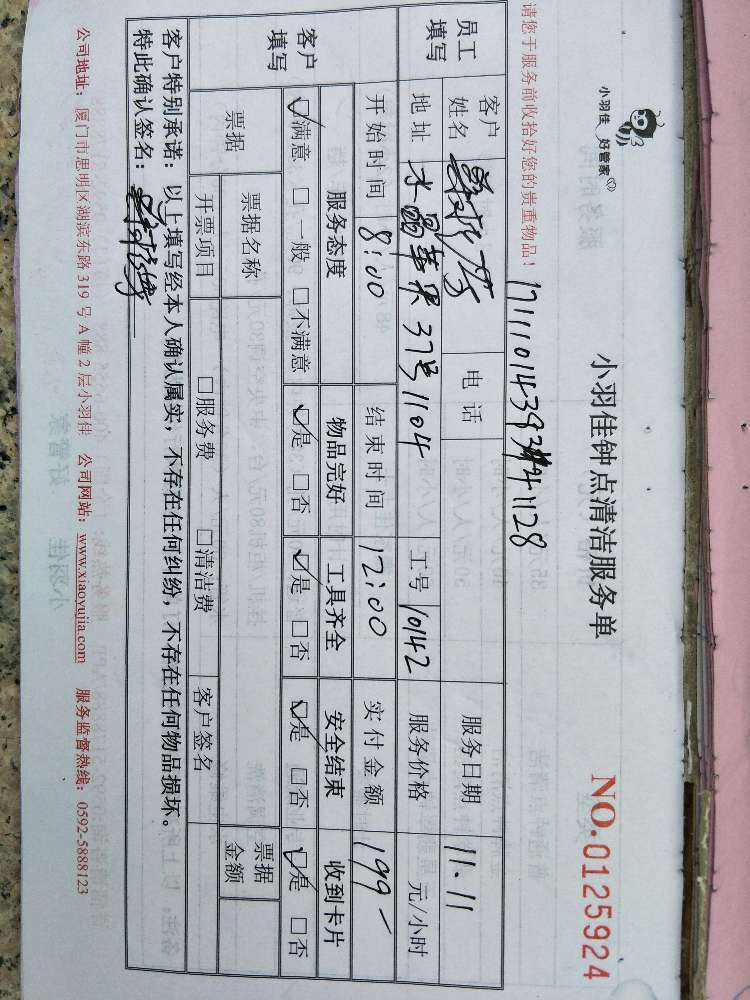 小羽佳 好管家
小羽佳钟点清洁服务单
NO.0125924
请您于服务前收拾好您的贵重物品!
员工填写 客户姓名 电话 服务日期 11.11
地址 水晶苹果 37号1104 工号 10142 服务价格 元/小时
开始时间 8:00 结束时间 12:00 实付金额 199-
客户填写 服务态度 物品完好 工具齐全 安全结束 收到卡片
☑满意 □一般 □不满意 ☑是 □否 ☑是 □否 ☑是 □否 ☑是 □否
票据 票据名称 票据金额
开票项目 □服务费 □清洁费 客户签名
客户特别承诺:以上填写经本人确认属实,不存在任何纠纷,不存在任何物品损坏。
特此确认签名:
公司地址:厦门市思明区湖滨东路 319 号 A 幢 2 层小羽佳 公司网站:www.xiaoyujia.com 服务监督热线:0592-5888123